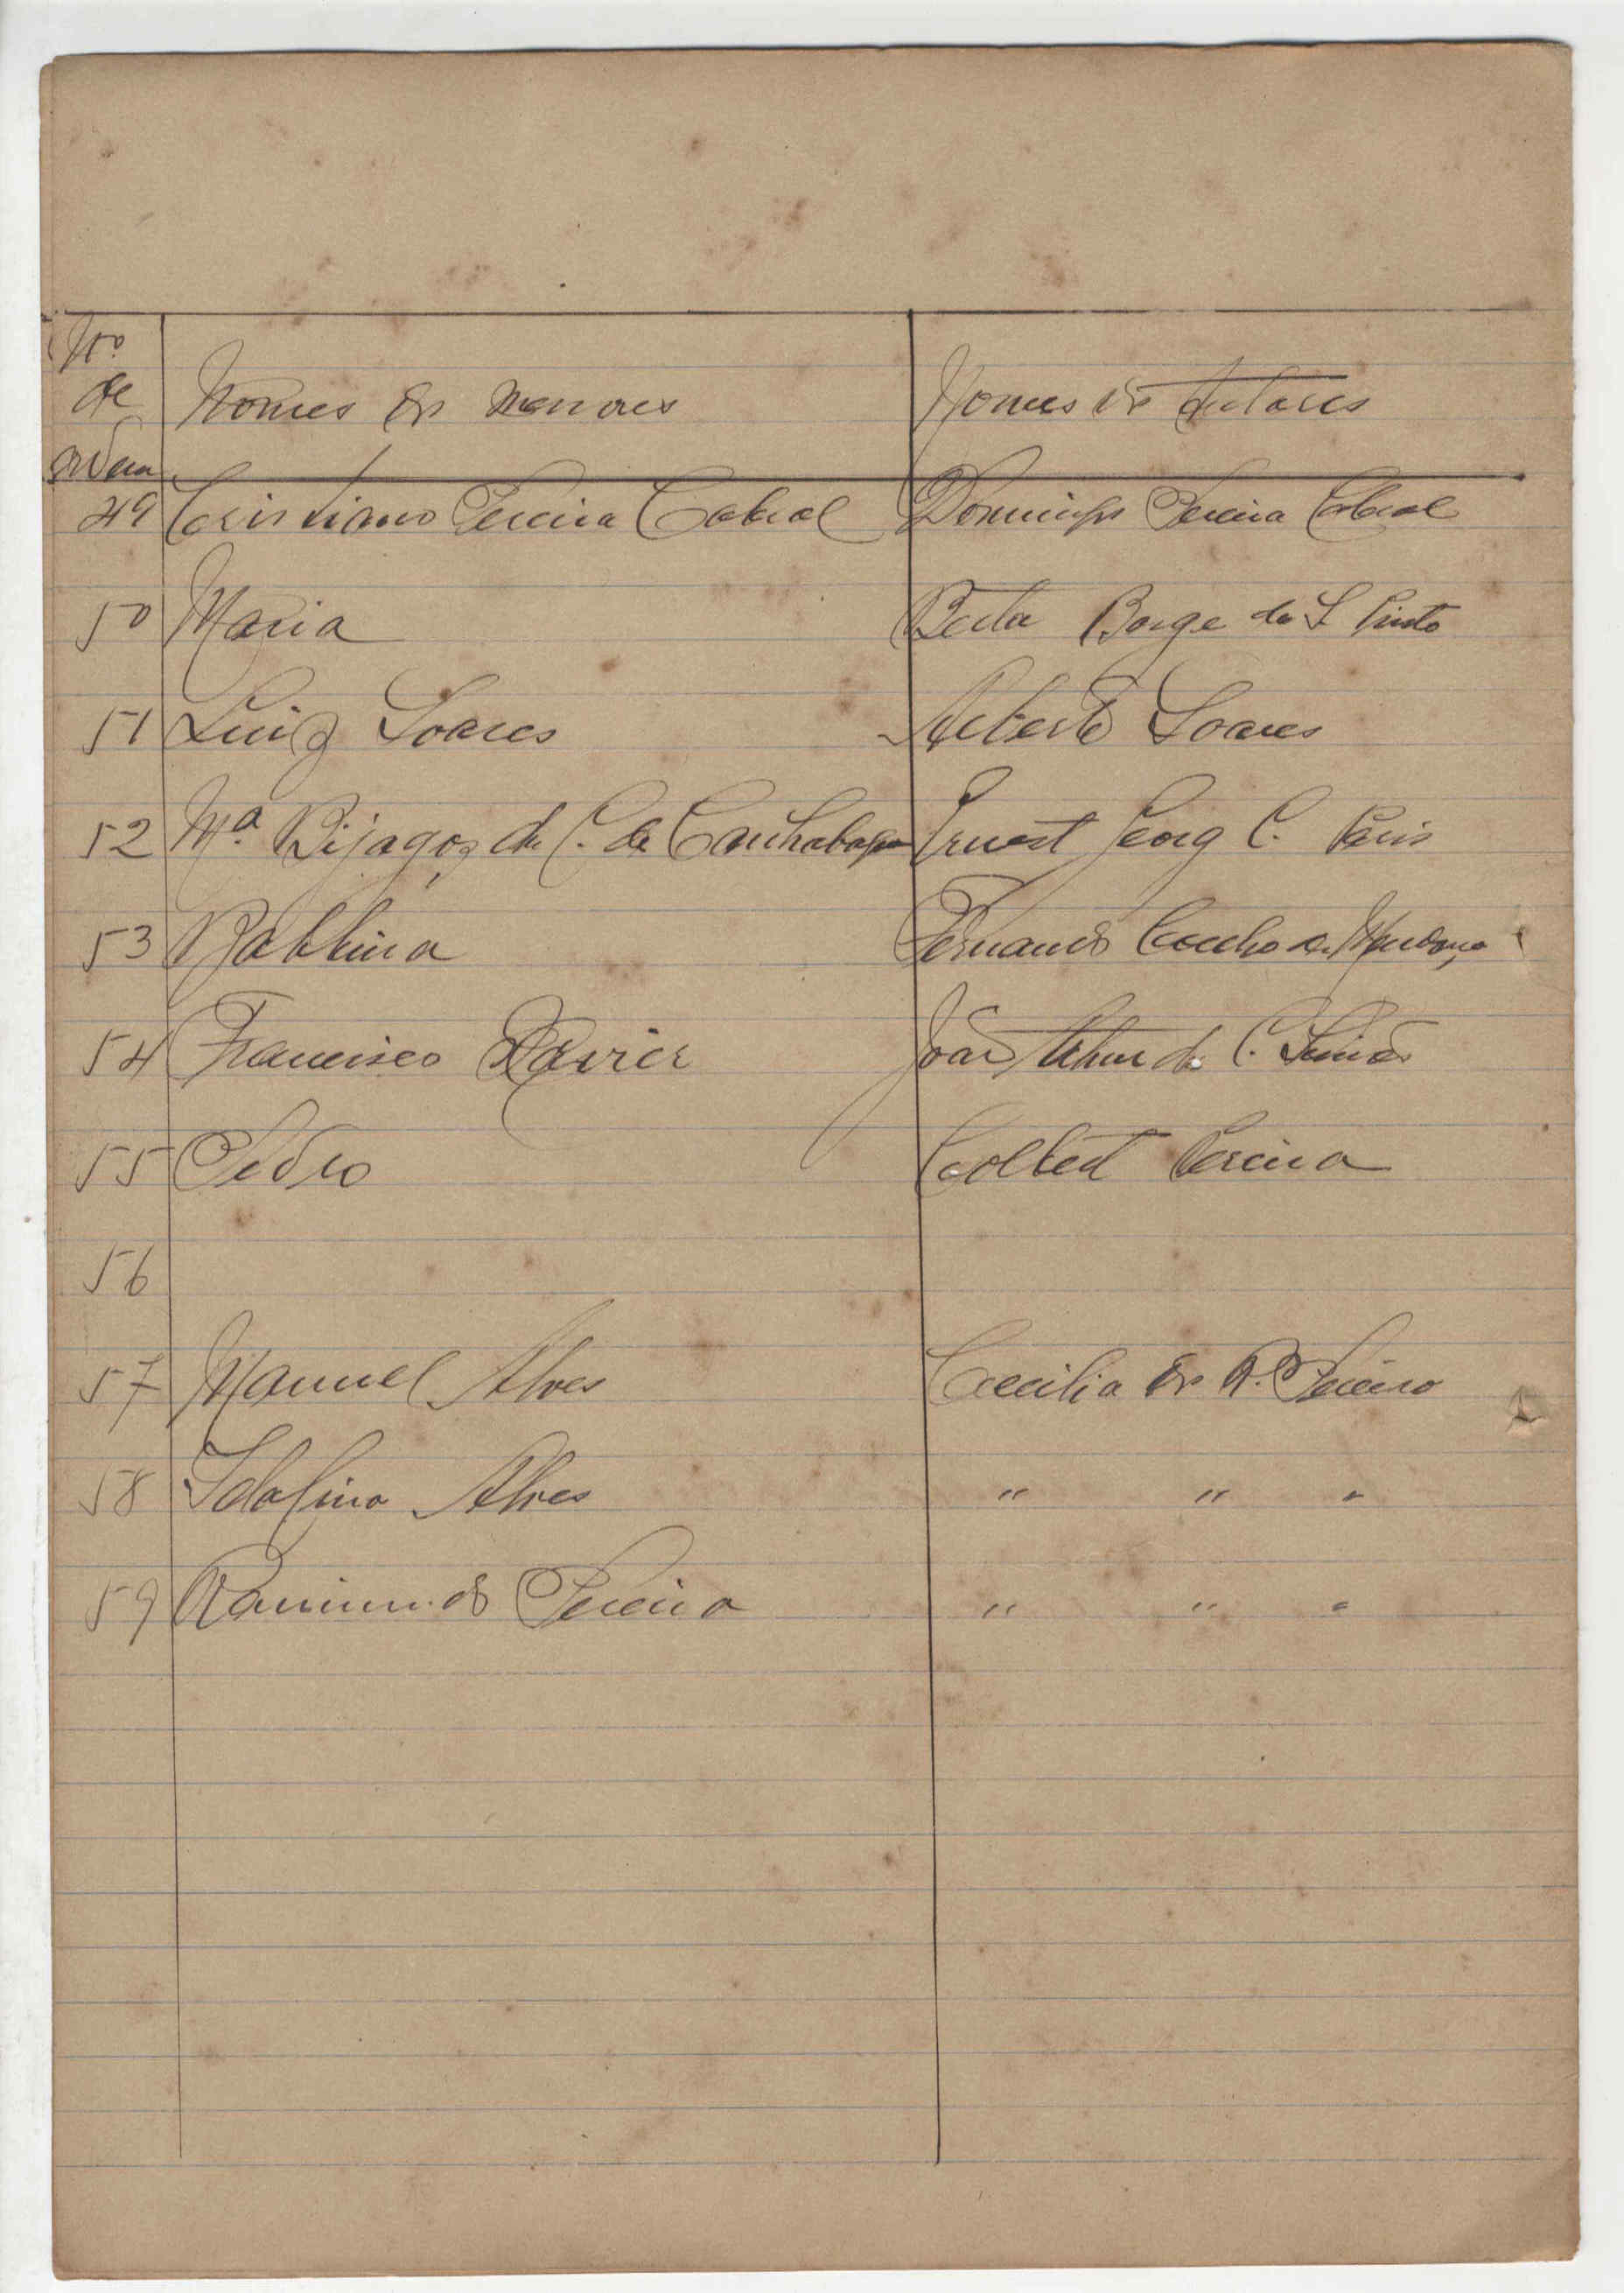 Nº
de
ordem
Nomes dos menores
Nomes dos tutores
49 Cristiano Pereira Cabral Domingos Pereira Cabral
50 Maria Berta Borge da S Pinto
51 Luiz Soares Alberto Soares
52 Mª. Bijagoz de C. de Ernest Georg C.
53 Balbina Fernando Coelho de Mendonça
54 Francisco Xavier João Artur da C.
55 Pedro Colbert Pereira
56
57 Manuel Alves Cecilia do R. Pereira
58 Idalina Alves " " "
59 Raimundo Pereira " " "